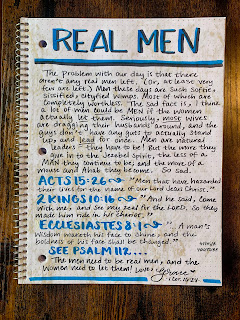 REAL MEN
The problem with our day is that there
aren't any real men left. (Or, at least very
few are left.) Men these days are such softie,
sissified, cityfied wimps. Most of which are
completely worthless. The sad fact is, I think
a lot of men could be MEN if the women
actually let them. Seriously, most wives
are dragging their husbands around, and the
guys don't have any guts to actually stand
up, and lead for once. Men are natural
leaders if they have to be! But the more they
give in to the Jezebel Spirit, the less of a
MAN they continue to be, and the more of a
mouse and Ahab they become. So sad.
ACTS 15:26 "Men that have hazarded
their lives for the name of our Lord Jesus Christ."
2 KINGS 10:16 "And he said, Come
with me, and see my zeal for the LORD. So they
made him ride in his chariot."
ECCLESIASTES 8:1 "...A man's
wisdom maketh his face to shine, and the
boldness of his face shall be changed."
SEE PSALM 112...
The men need to be real men, and the
women need to let them! Love, Grace
1 Cor. 15:24